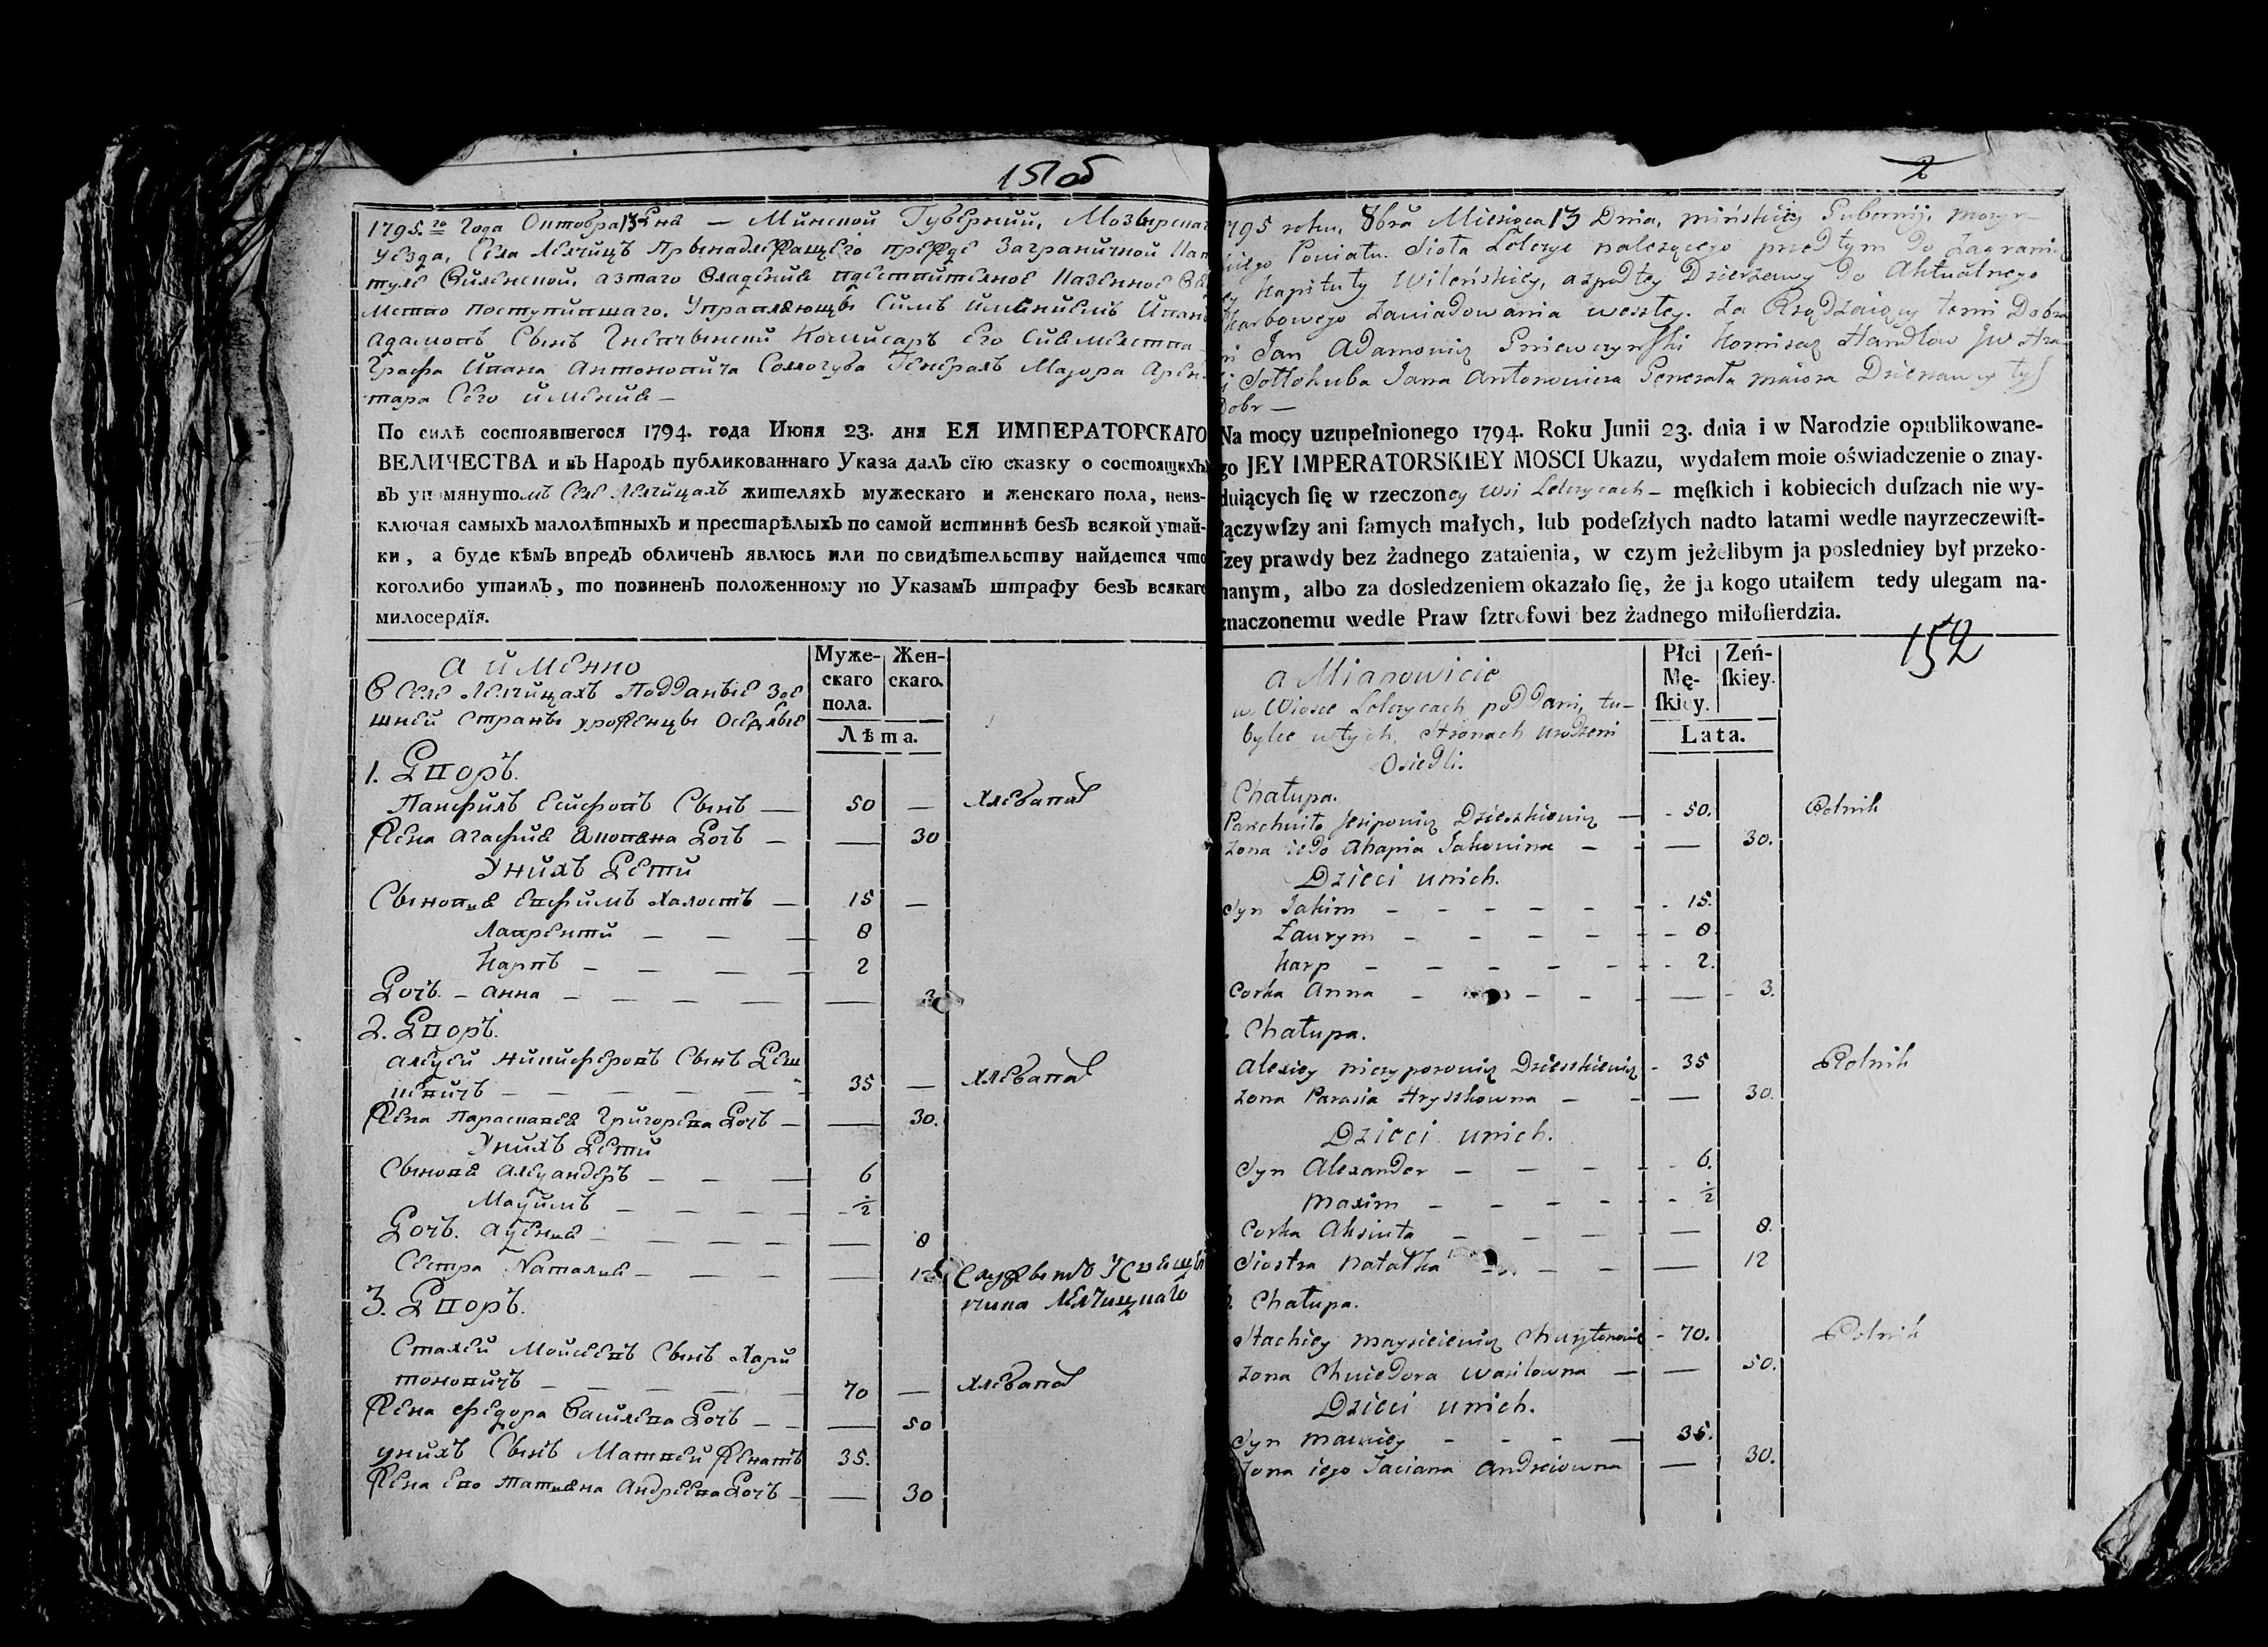 151 об
1795.го Года Октобра 13 Дня — Минской Губернии, Мозырскаго
уезда, Села Лелчицъ Прынадлежащего прежде Заграничной Кап
туле Виленской, а
поступившаго. Управляющы Симъ имениемъ Иванъ
Адамовъ Сынъ Гневчынски Комисаръ Его
Графа Ивана Антоновича Сологуба Генералъ Маиора Арен-
тара Сего имения —
По силѣ состоявшегося 1794. года Июня 23. дня ЕЯ ИМПЕРАТОРСКАГО
ВЕЛИЧЕСТВА и въ Народѣ публикованнаго Указа далъ сїю сказку о состоящихъ
въ упомянутомъ Селе Лелчицахъ жителяхъ мужескаго и женскаго пола, неиз-
ключая самыхъ малолѣтныхъ и престарѣлыхъ по самой истиннѣ безъ всякой утай-
ки, а буде кѣмъ впредь обличенъ явлюсь или по свидѣтельству найдется что
коголибо утаилъ, то повиненъ положенному по Указамъ штрафу безъ всякаго
милосердїя.
а именно
В Селе Лелчицахъ Подданые Зде
шней Страны уроженцы Оседлые
Муже-
скаго
пола.
Жен-
скаго.
Лѣта.
1. Дворъ.
Панфилъ Есифовъ Сынъ — 50 — Хлебапа
Жена Агафия Яковлена Дочь — — 30
У нихъ Дети
Сыновя Ефимъ Халостъ — 15 —
Лаврентй — — — 8
Карпъ — — — 2
Дочъ. — Анна — — — — 3
2. Дворъ.
Алеξей Никифоровъ Сынъ Деш
кевичъ — — — — 35 — Хлебапа
Жена Параскавея Григорева Дочъ — — 30.
У нихъ Дети
Сыновя Алеξандеръ — — — 6
Маξимъ — — — ½
Дочъ. Аξения — — — — 8
Сестра Наталия — — — — 12
3. Дворъ.
Стахей Моисеевъ Сынъ Хари
тоновичъ — — — — 70 — Хлебапа
Жена Федора Василева Дочъ — — 50
у нихъ Сынъ Матвей Женатъ 35.
Жена Ево Татияна Андреева Дочъ — — 30
2
1795 roku, 8bra Miesiąca 13 Dnia, mińskiey Gubernij, mozyr-
Powiatu. Sioła Lelczyc należącego przedtym do zagrani
Kapituły Wileńskiey, a zpodtey Dzierżawy do Aktualnego
Skarbowego zawiadowania weszłey. Za Rządzaiący temi Dobra
mi Jan Adamowicz Gniewczynski Komisarz
Sołłohuba Jana Antonowicza Generała maiora Dzierżawcy tych
Dobr —
Na mocy uzupełnionego 1794. Roku Junii 23. dnia i w Narodzie opublikowane-
go JEY IMPERATORSKIEY MOSCI Ukazu, wydałem moie oświadczenie o znay-
duiących ſię w rzeczoney Wsi Lelczycach — męſkich i kobiecich duſzach nie wy-
łączywſzy ani ſamych małych, lub podeſzłych nadto latami wedle nayrzeczewiſt-
ſzey prawdy bez żadnego zataienia, w czym jeżelibym ja posledniey był przeko-
nanym, albo za dosledzeniem okazało ſię, że ja kogo utaiłem tedy ulegam na-
znaczonemu wedle Praw ſztrofowi bez żadnego miłoſierdzia.
152
a Mianowicie
w Wiosce Lelczycach poddani, tu-
bylce w tych Stronach urodzeni
Osiedli.
Płci
Mę-
ſkiey.
Zeń-
ſkiey.
Lata.
Chałupa.
Panchwiło Jesipowicz Dzieszkiewicz — 50. Rolnik
Zona iego Ahapia Jakowina — — 30.
Dzieci unich.
Syn Jakim — — — — 15.
Ławrym — — — — 8
Karp — — — — 2.
Corka Anna — — — — 3.
Chałupa.
Alexiey Niczyporowicz Dzieszkiewicz — 35 Rolnik
Zona Parasia Hryszkowna — — 30.
Dzieci unich.
Syn Alexander — — — 6.
Maxim — — — — ½
Corka Aksiuta — — — — 8.
Siostra Natalka — — — — 12
Chałupa.
Stachiey Maysieiewicz Charytonowicz — 70. Rolnik
Zona Chwiedora Wasilowna — — 50.
Dzieci unich.
Syn Maciey — — — 35.
Zona iego Taciana Andreiowna — 30.